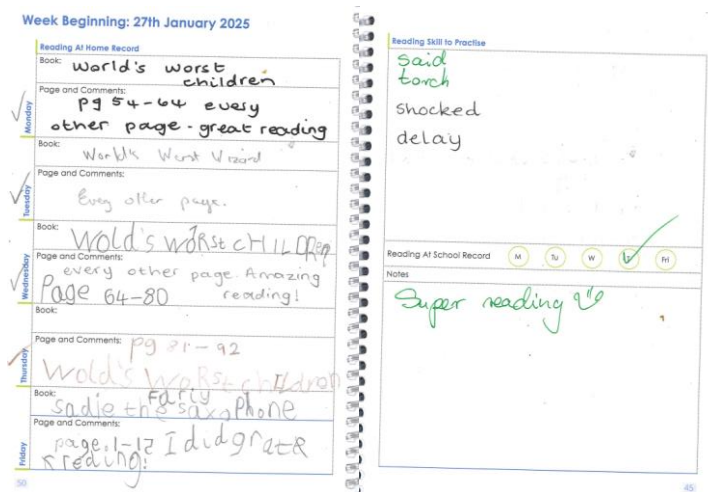 Week Beginning: 27th January 2025
Reading At Home Record
Book: World's worst
children
Page and Comments:
Monday
pg 54-64 every
other page - great reading
Book: World's Worst Wizard
Page and Comments:
Tuesday
Every other page.
Book: Wold's woRst cHILDRen
Page and Comments:
Wednesday
every other page. Amazing
Page 64-80 reading!
Book:
Page and Comments: pg 81-92
Thursday
Wold's WoRst children
Book: Fariy
sadie the saxophone
Page and Comments:
Friday
page. 1-12 I did grat&
reading!
50
Reading Skill to Practise
said
torch
shocked
delay
Reading At School Record M Tu W Fri
Notes
Super reading
45